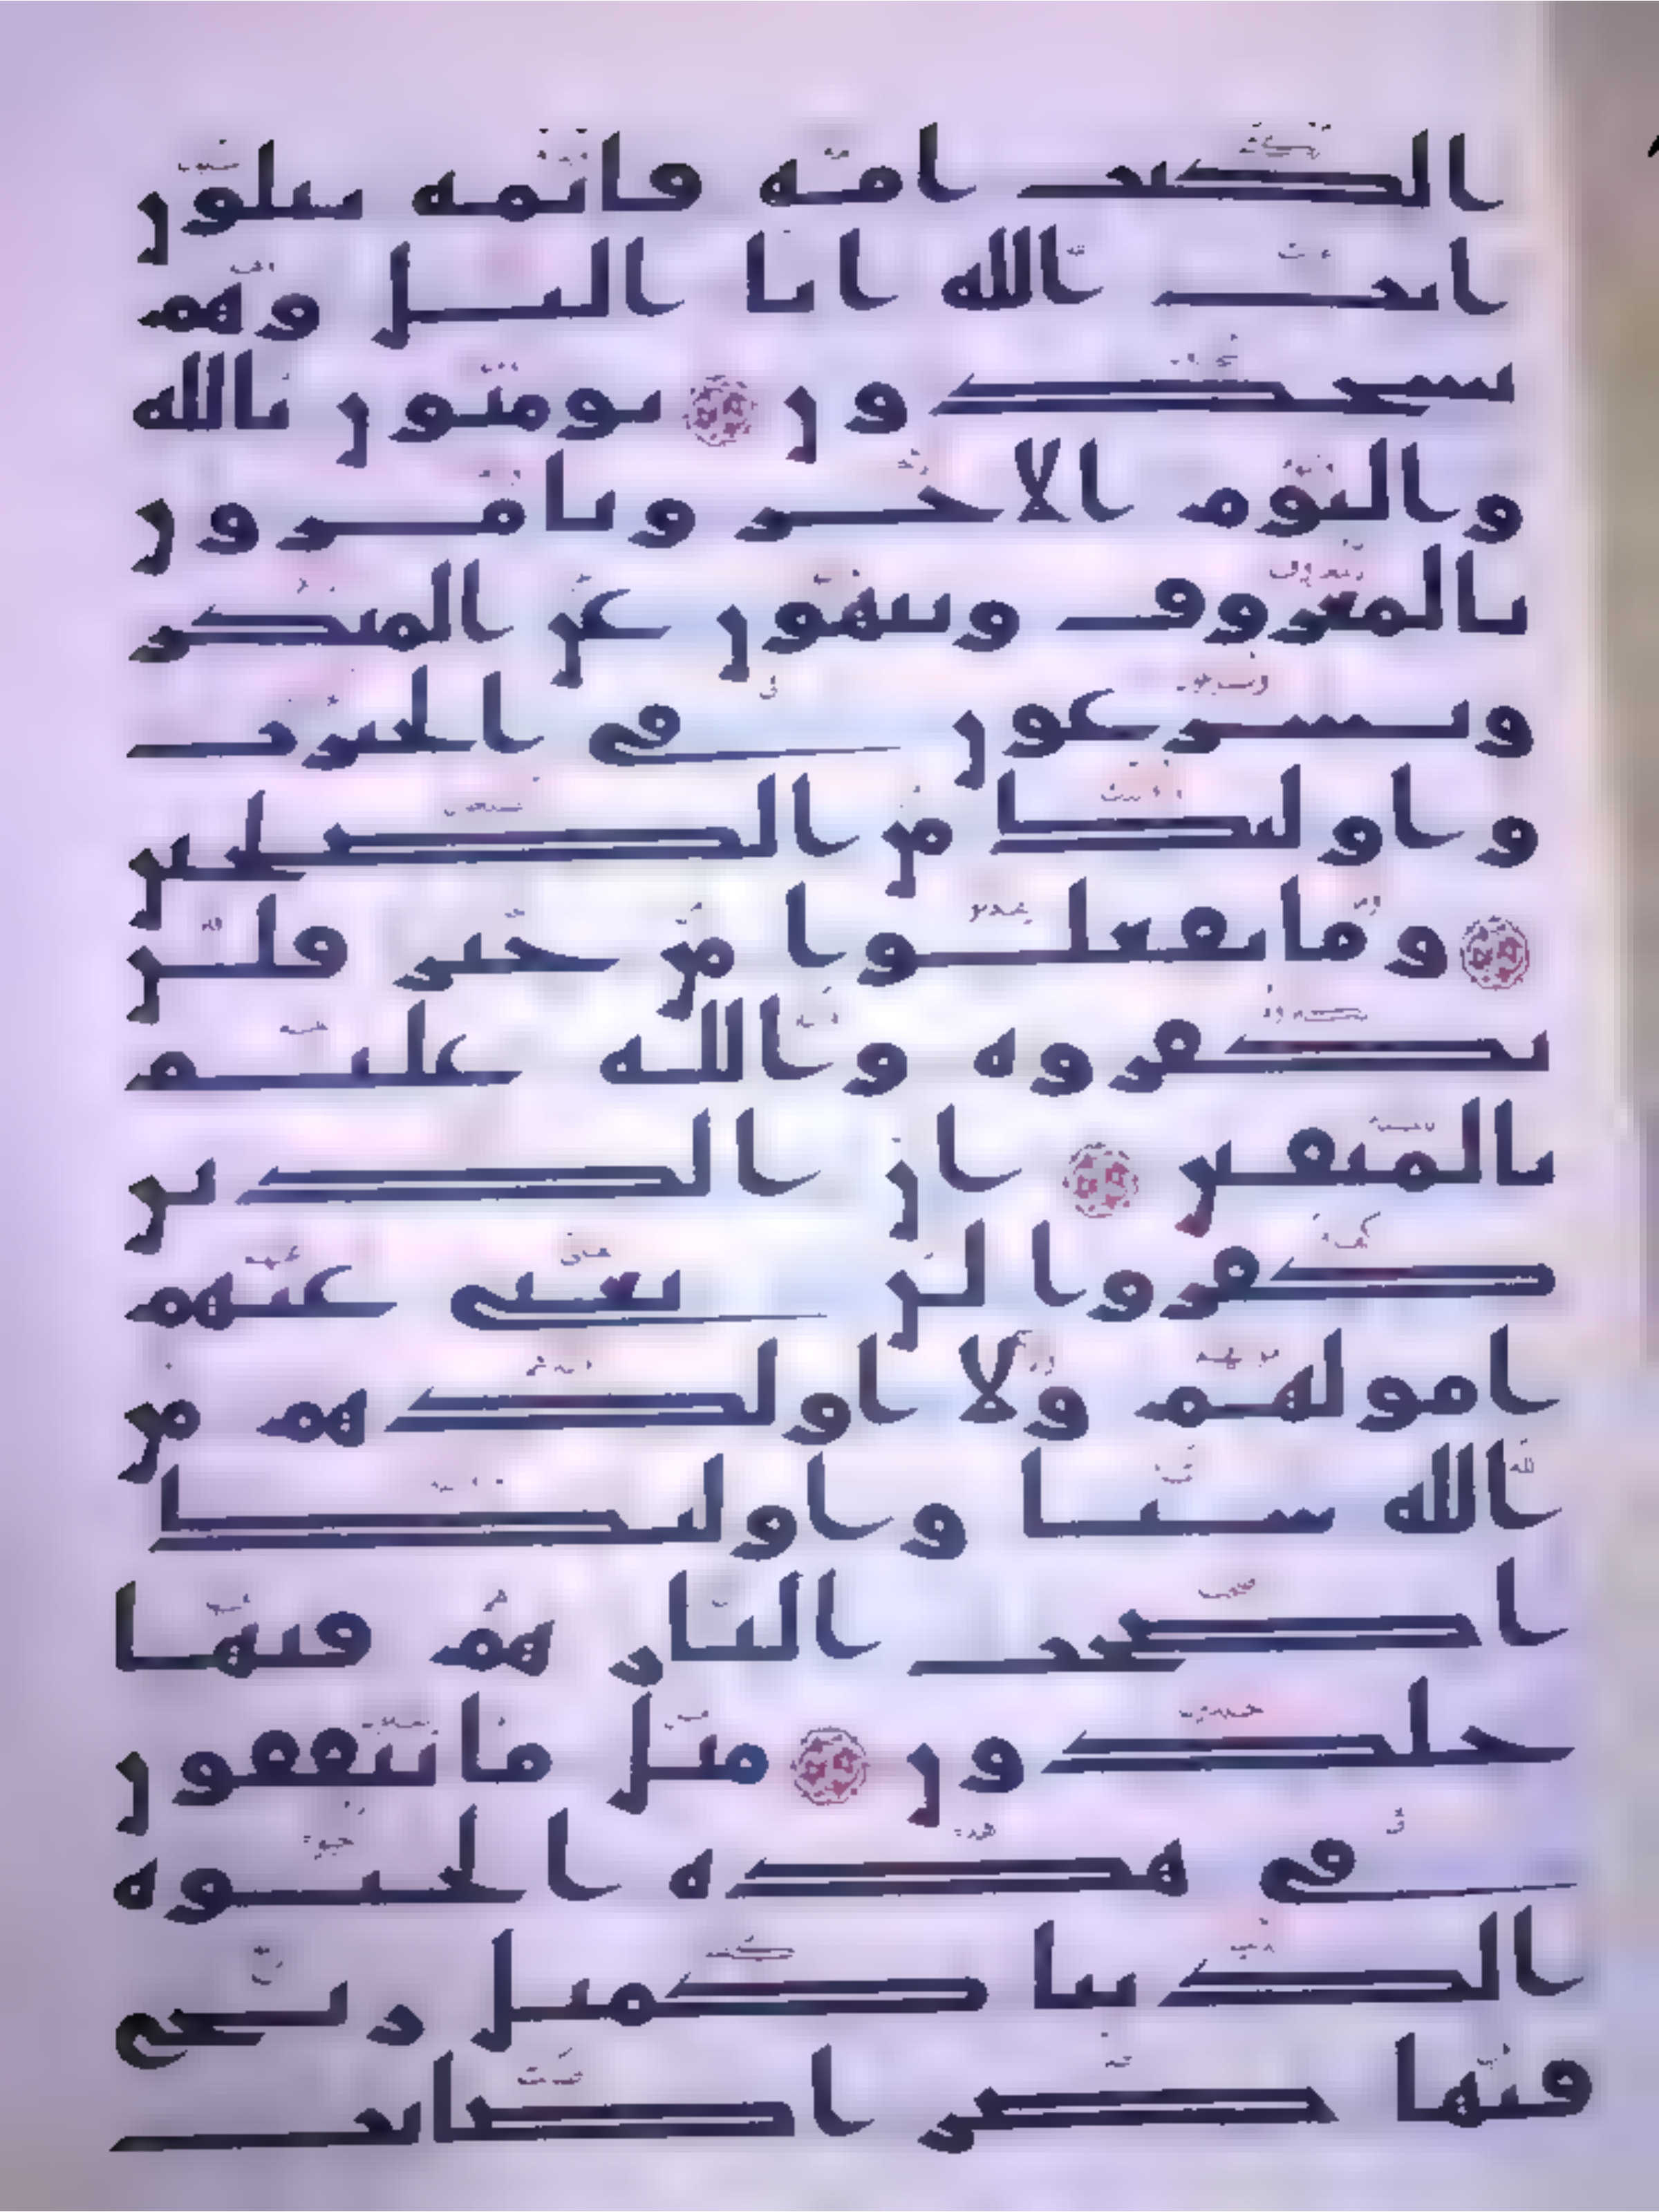 الكتب امة قائمة يتلون
ايت الله انا اليل وهم
يسجدون يومنون بالله
واليوم الاخر ويامرون
بالمعروف وينهون عن المنكر
ويسرعون في الخيرت
واولئك من الصلحين
وما يفعلوا من خير فلن
يكفروه والله عليم
بالمتقين ان الذين
كفروا لن تغني عنهم
امولهم ولا اولدهم من
الله شيا واولئك
اصحب النار هم فيها
خلدون مثل ما ينفقون
في هذه الحيوة
الدنيا كمثل ريح
فيها صر اصابت